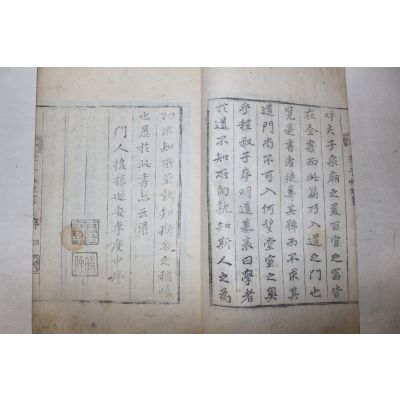 呼夫子宗廟之美百官之富皆
在全書而此篇乃入道之門也
覽是書者徒專其而不求其
道門尚不可入何望堂室之奧
乎程叔子序明道墓表曰學者
於道不知所向孰知斯人之為
功不知所至孰知斯名之稱情
也愚於此書亦云爾
門人後孫延安李度中序